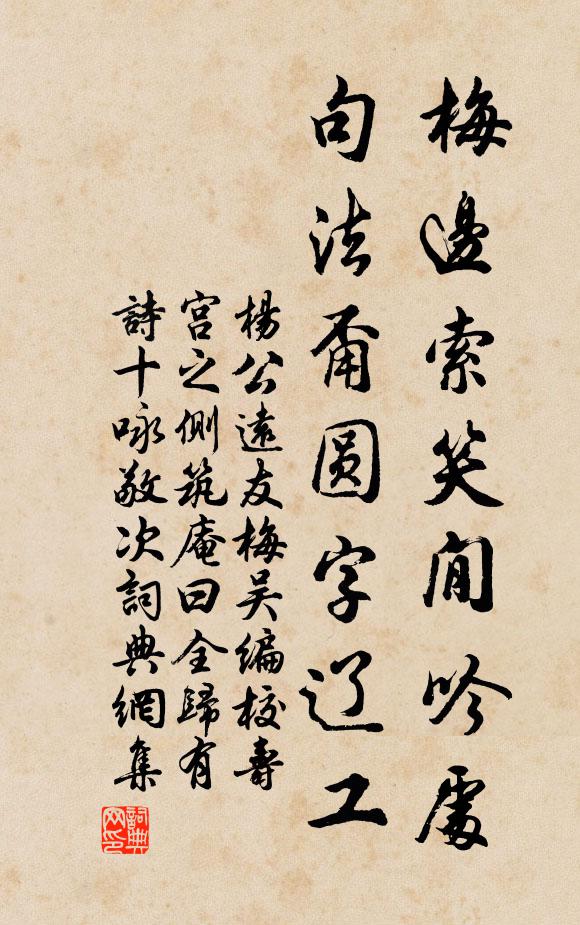 梅邊索笑閒吟處
句法甭圆字辽工
楊公遠友梅吴編校壽
宮之側筑庵曰全歸有
詩十咏敬次詞典網集
詞典网印